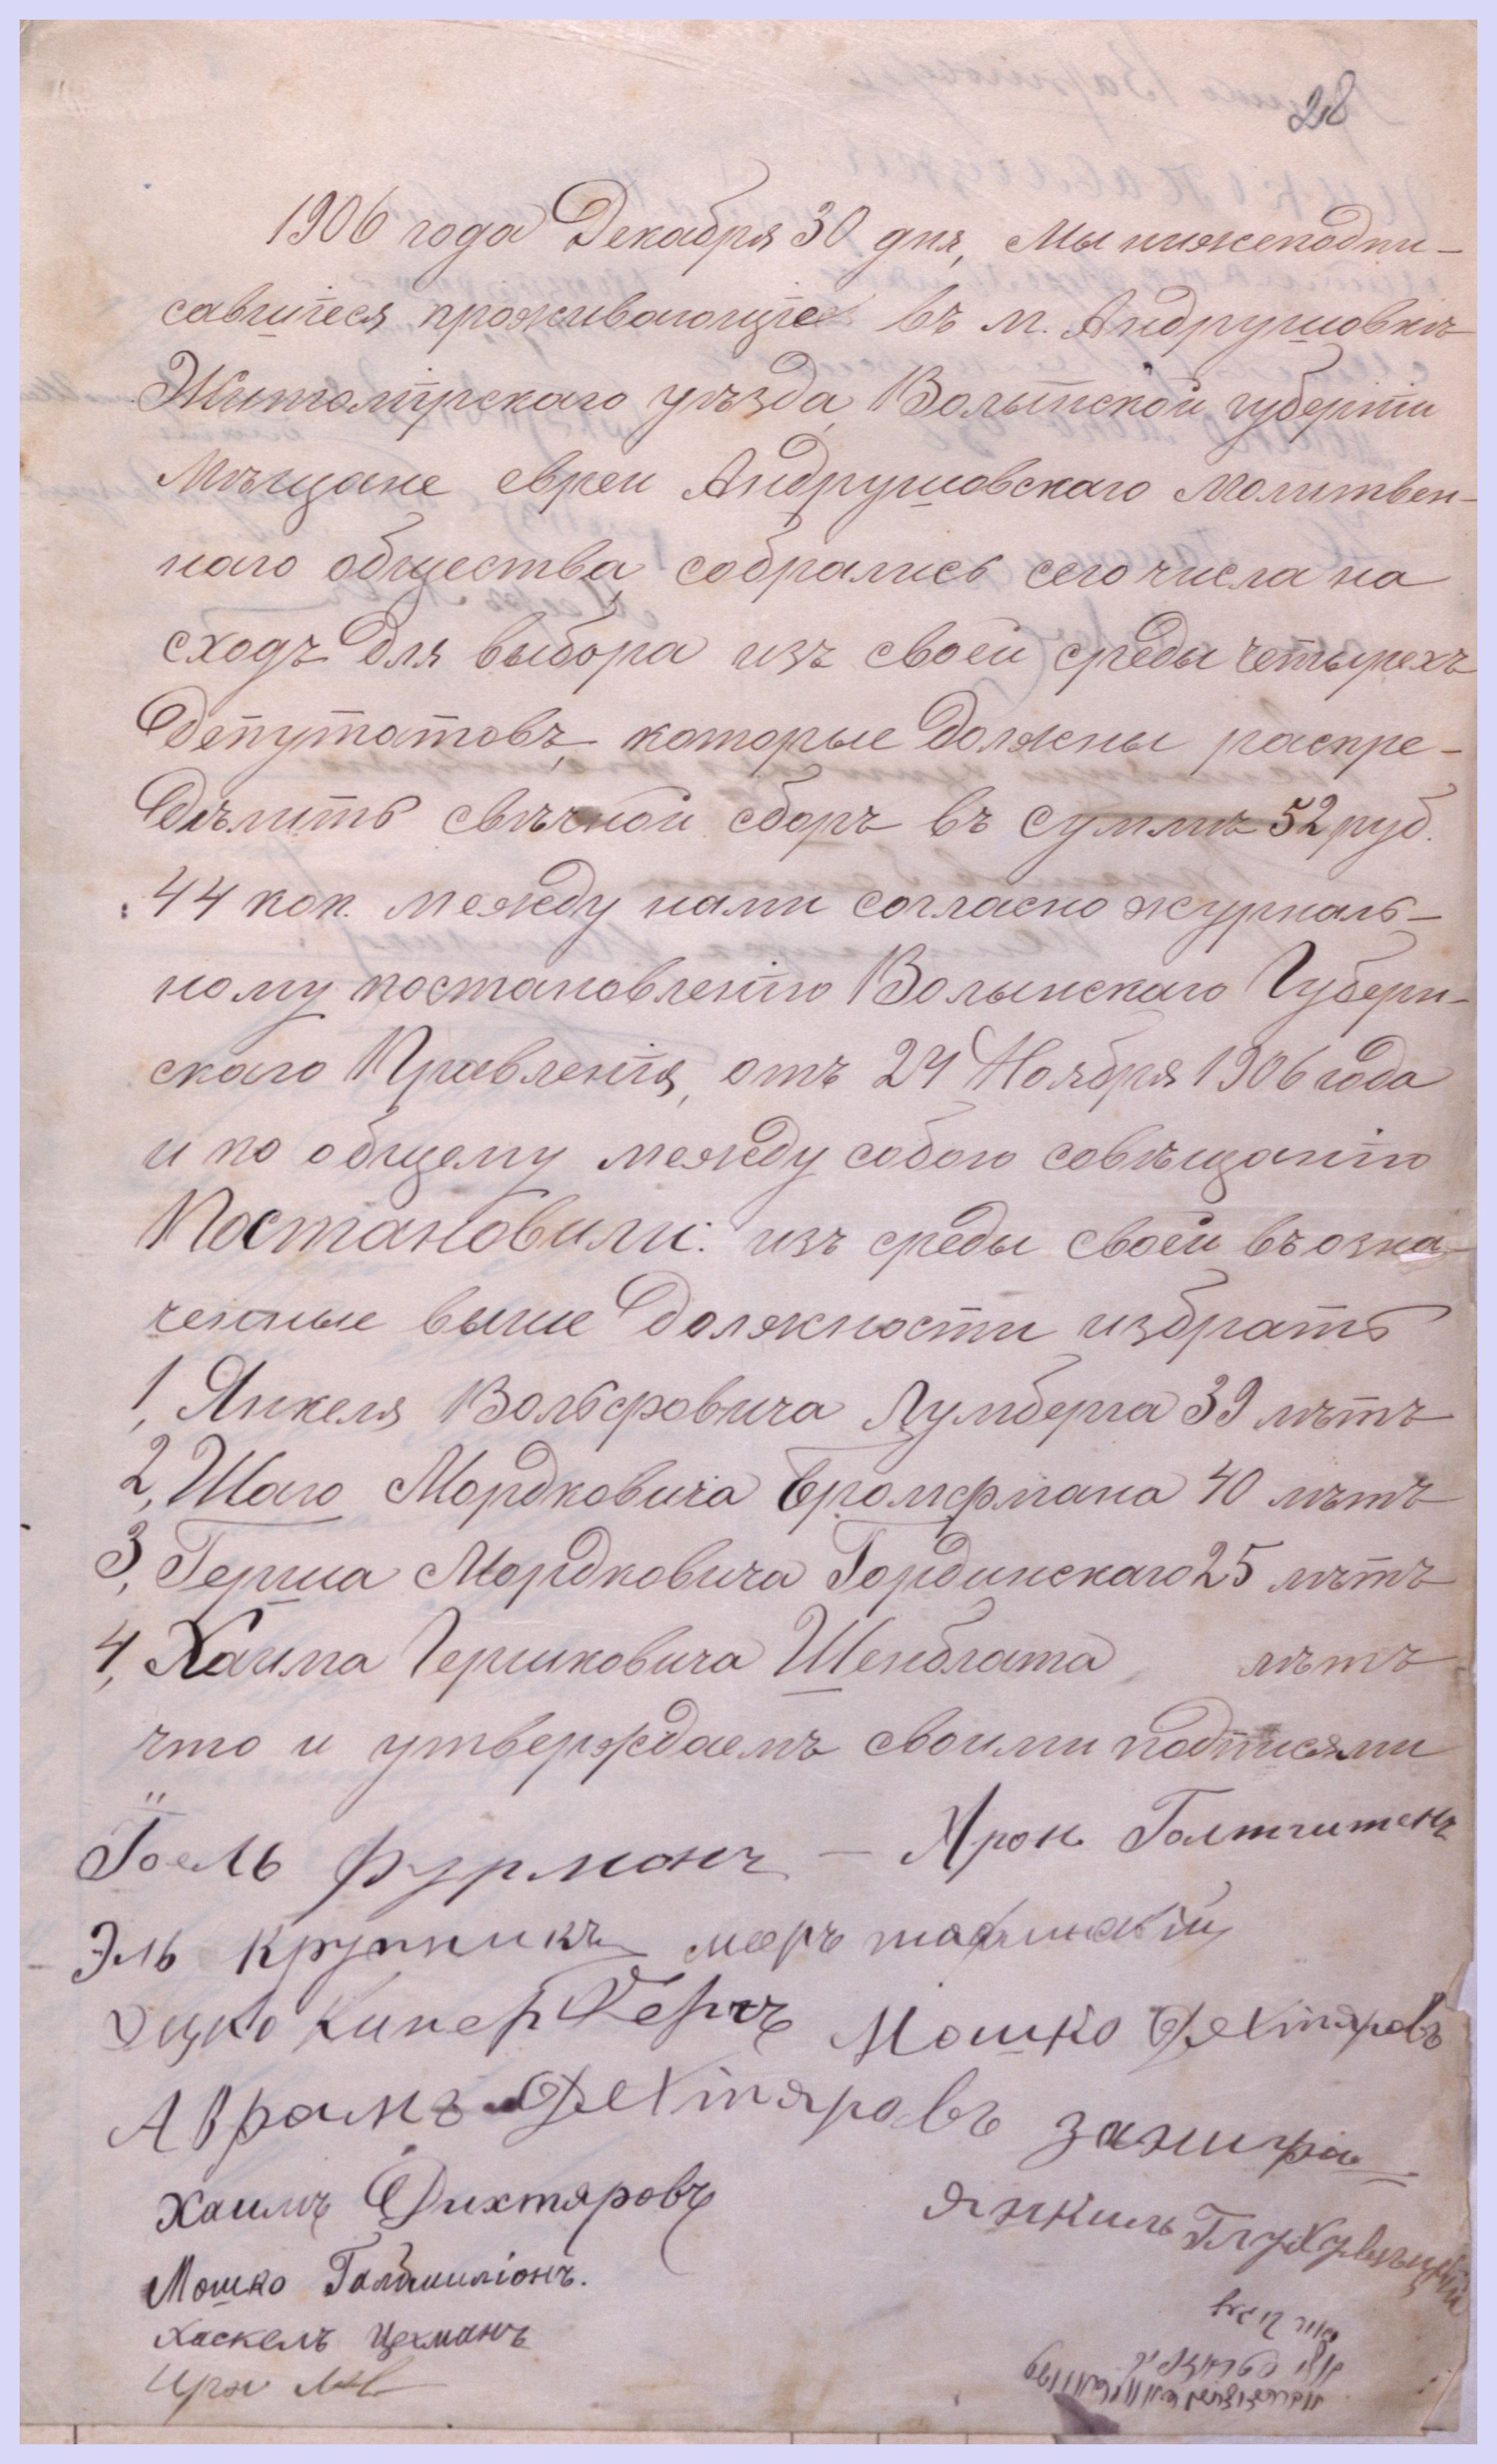 28
1906 года Декабря 30 дня, мы нижеподпи-
савшіеся проживающіе въ м. Андрушовкѣ
Житомірскаго уѣзда, Волынской губерніи
мѣщане евреи Андрушовскаго молитвен-
наго общества, собрались сего числа на
сходъ для выбора изъ своей среды четырехъ
депутатовъ, которые должны распре-
дѣлить свѣчной сборъ въ суммѣ 52 руб.
44 коп. между нами согласно журналь-
ному постановленію Волынскаго Губерн-
скаго Правленія, отъ 24 Ноября 1906 года
и по общему между собою совѣщанію
Постановили: изъ среды своей въ озна-
ченные выше должности избрать
1, Янкеля Вольфовича Лумберга 39 лѣтъ
2, Шаю Мордковича Бромфмана 40 лѣтъ
3, Герша Мордковича Гординскаго 25 лѣтъ
4, Хаима Гершковича Шенблата лѣтъ
что и утверждаемъ своими подписями
Іоель Фурманъ – Арон
Эль Крупникъ меръ
Ицко Кипер Беръ Мошко Дехтяровъ
Аврамъ Дехтяровъ
Хаимъ Дихтяровъ Янкиль
Мошко
Хаскель Цехманъ